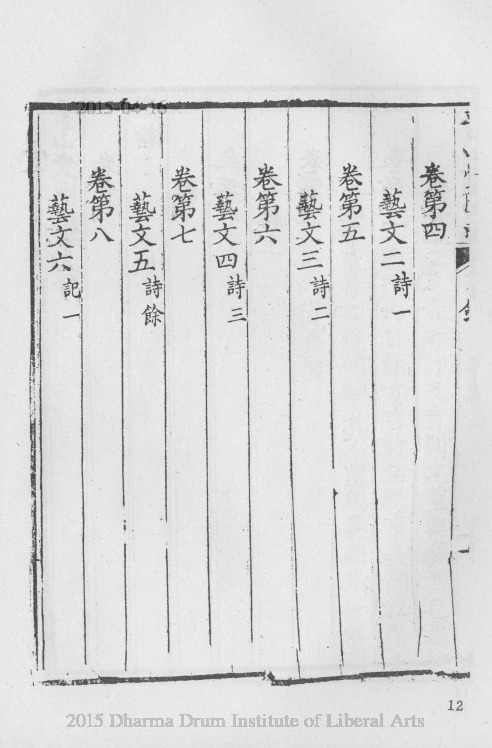 卷第四
藝文二 詩一
卷第五
藝文三 詩二
卷第六
藝文四 詩三
卷第七
藝文五 詩餘
卷第八
藝文六 記一
12
2015-04-16
2015 Dharma Drum Institute of Liberal Arts